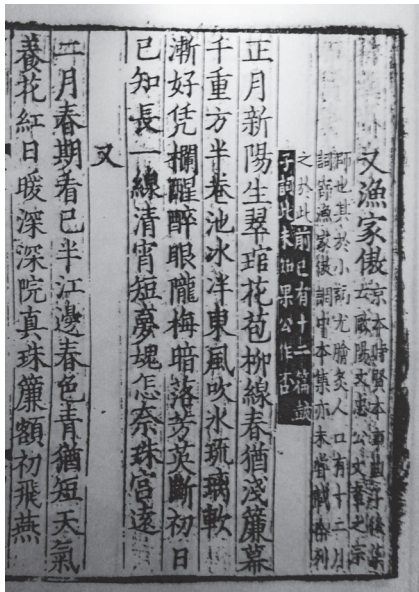 又漁家傲
京本時賢本事曲子後集
云歐陽文忠公文章之宗
師也其於小詞尤膾炙人口有十二月
詞寄漁家傲調中本集亦未嘗載今列
之於此前已有十二篇鼓
子詞此未知果公作否
正月新陽生翠琯花苞柳線春猶淺簾幕
千重方半卷池水泮東風吹水琉璃軟
漸好凭欄醒醉眼隴梅暗落芳英斷初日
已知長一線清宵短夢魂怎奈珠宮遠
又
二月春期看已半江邊春色青猶短天氣
養花紅日暖深深院真珠簾額初飛燕